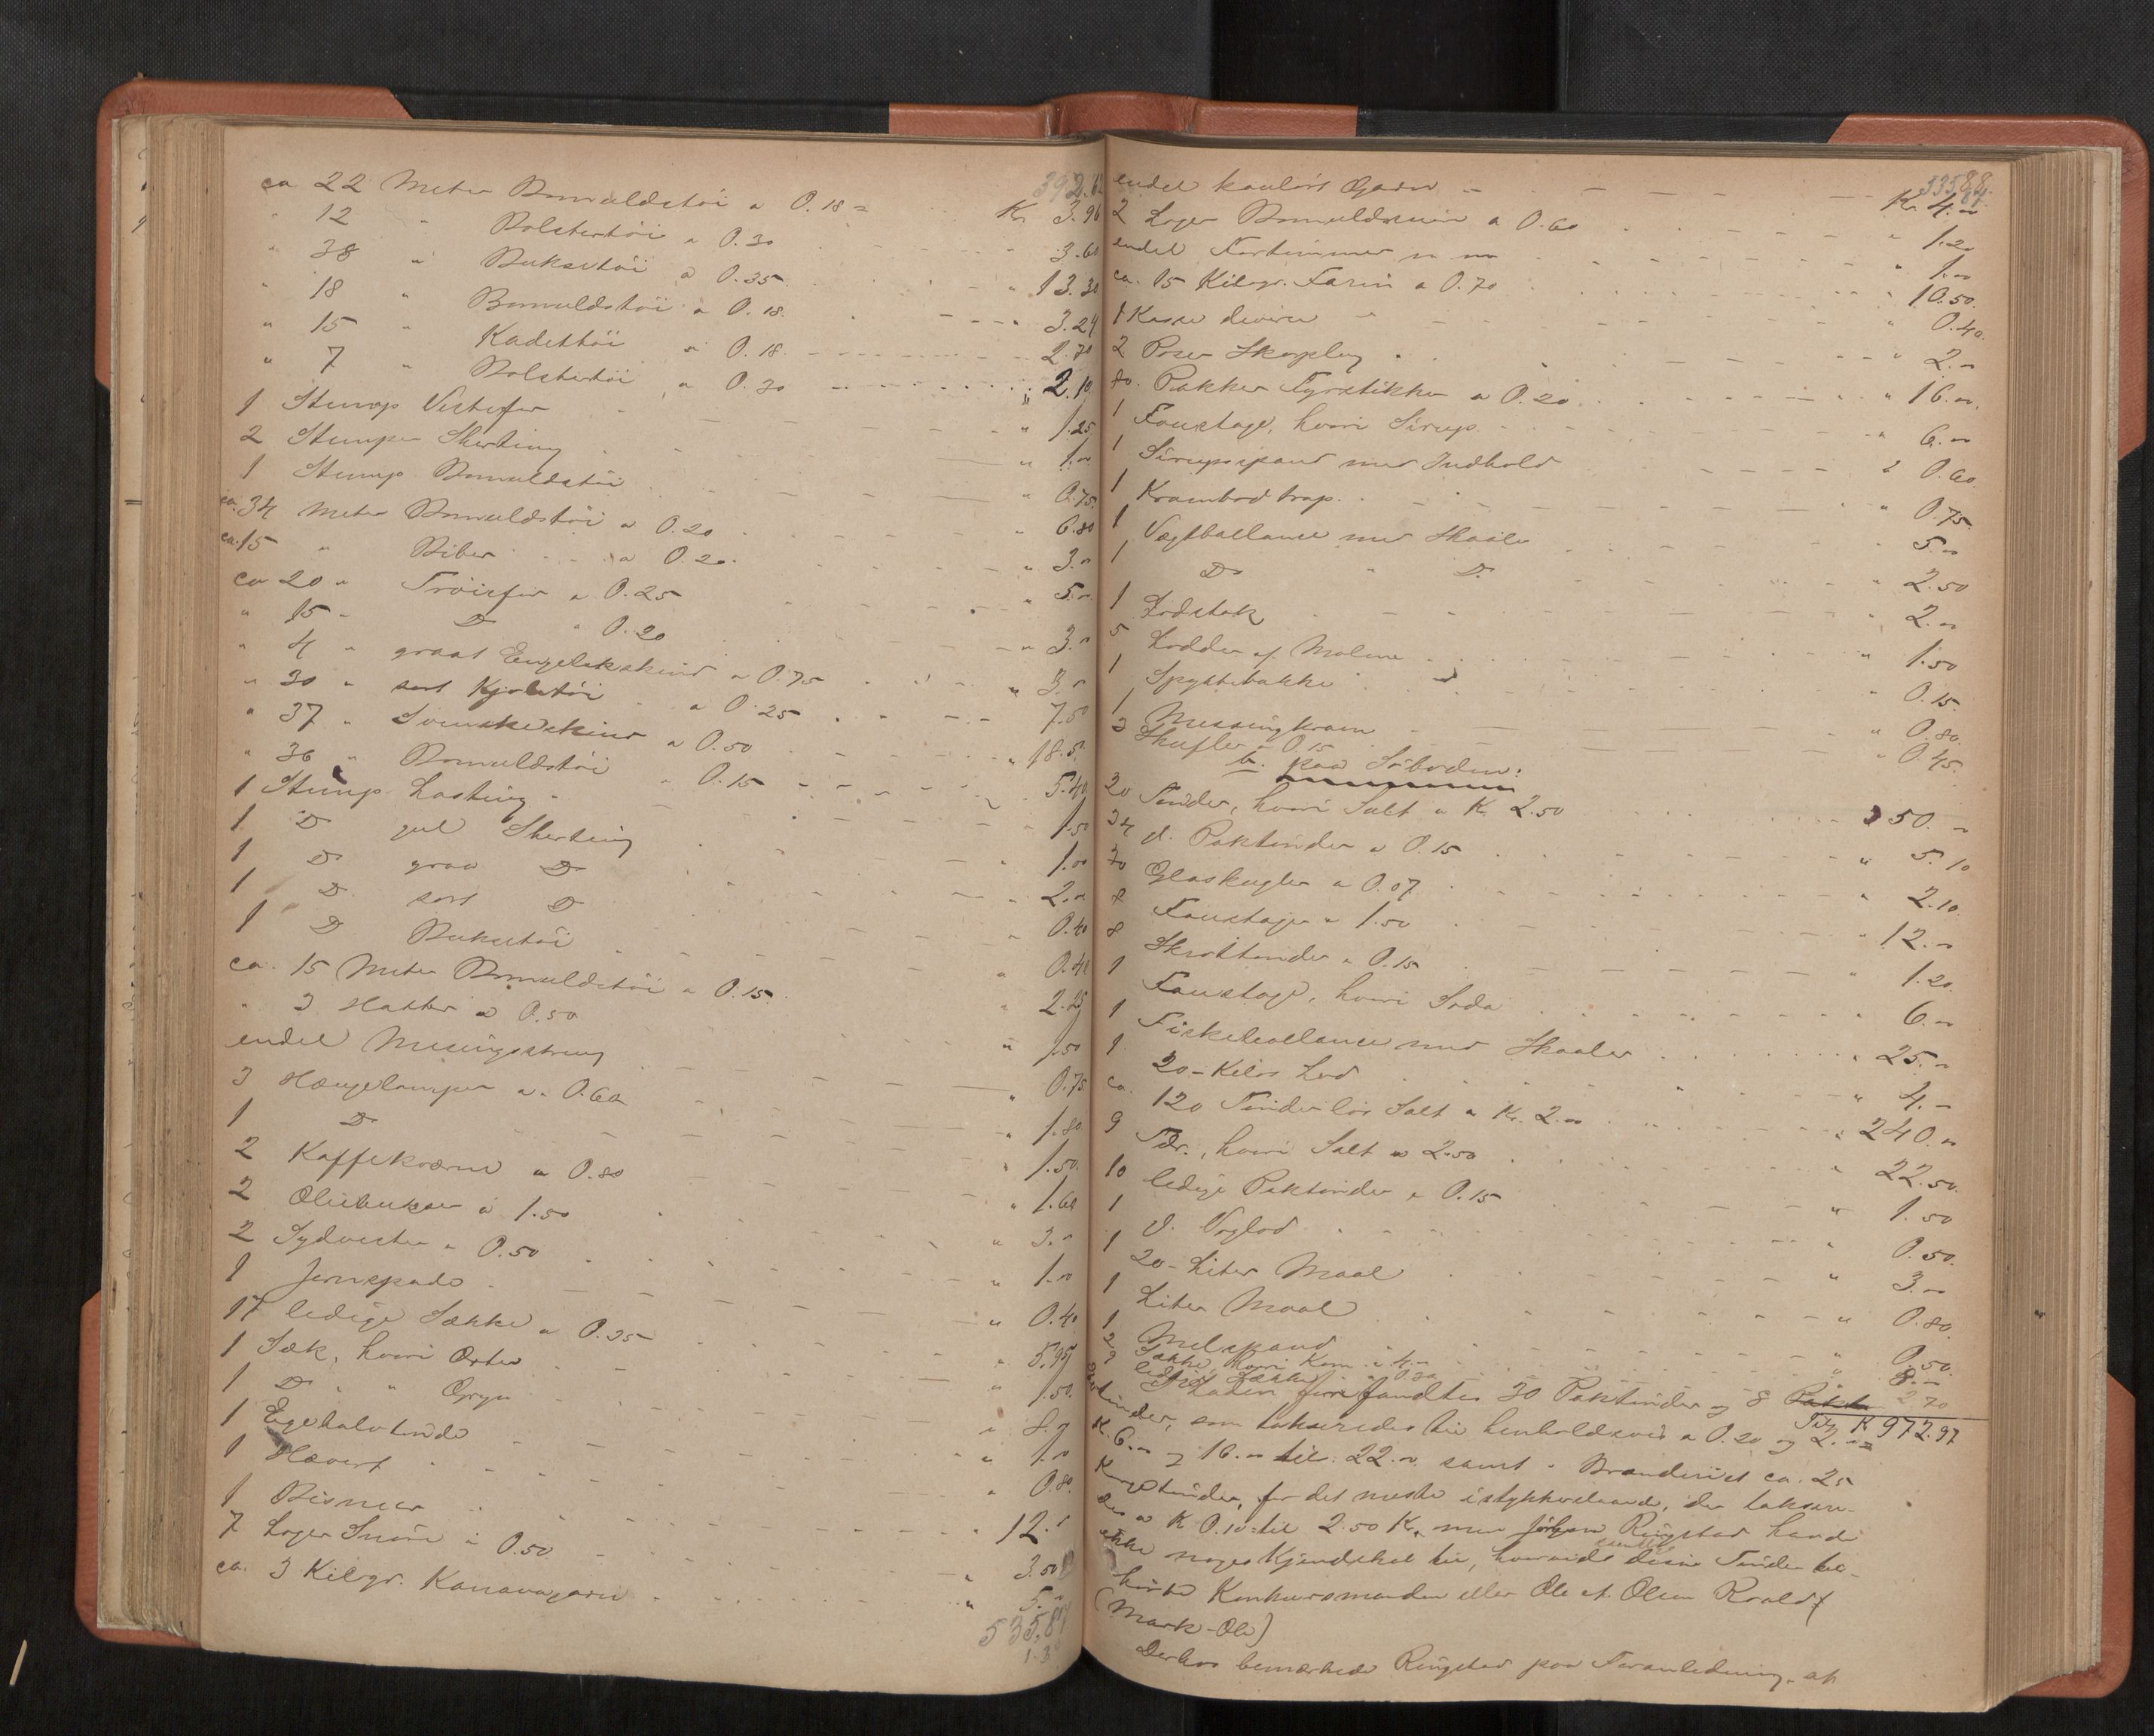 392.62
ca 22 Meter Bomuldstöi a 0.18 = Kr. 3.96
" 12 " Bolstertöi a 0.30 " 3.60
" 38 " Buksetöi a 0.35 " 13.30
" 18 " Bomuldstöi a 0.18 " 3.24
" 15 " Kadettöi a 0.18 2.70
" 7 " Bolstertöi a 0.30 " 2.10
1 Stump Vestefor " 1.25
2 Stumper Sherting " 1.00
1 Stump Bomuldstöi " 0.75
ca. 34 Meter Bomuldstöi a 0.20 " 6.80
ca. 15 " Biber a 0.20 " 3.-
ca 20 " Tröiefor a 0.25 " 5.-
" 15 " Do " 0.20 " 3.-
" 4 " graat Engelskskind a 0.75 " 3.-
" 30 " sort Kjoletöi a 0.25 7.50
" 37 " Svenskeskind a 0.50 " 18.50
" 36 " Bomuldstöi " 0.15 5.40
1 Stump Lasting 1.50
1 Do gul Sherting " 1.00
1 Do graa Do " 2.-
1 Do sort Do " 0.40
1 Do Buksetöi " 0.40
ca. 15 Meter Bomuldstöi a 0.15 " 2.25
" 3 Hatter a 0.50 " 1.50
endel Messingstreng " 0.75
3 Hængelamper a 0.60 " 1.80
1 Do " 1.50
2 Kaffekværne a 0.80 " 1.60
2 Oliebukser a 1.50 " 3.-
2 Sydvester a 0.50 " 1.00
1 Jernspade " 0.40
17 ledige Sække a 0.35 " 5.95
1 Sæk, hvori Erter " 1.50
1 Do " " Gryn " 8.-
1 Egehalvtønde " 1.00
1 Hævert " 0.80
1 Bismer " 12.-
7 Loger Snøre a 0.50 " 3.50
ca. 3 Kilogr. Kanavagarn " 5.-
535.87
endel kulört Garn Kr. 4.00
2 Loger Bomuldssnøre a 0.60 " 1.20
endel Fortømmer m m " 1.00
ca. 15 Kilogr. Farin a 0.70 " 10.50
1 Kasse diverse " 0.40
2 Poser Skoplug " 2.-
80 Pakker Fyrstikker a 0.20 " 16.00
1 Foustage, hvori Sirup " 6.00
1 Sirupsspand med Indhold " 0.60
1 Krambodtrap. " 0.75
1 Vægtballance med Skaaler 5.-
1 Do " Do " 2.50
1 Lodstok " 2.-
5 Lodder af Malme " 1.50
1 Spyttebakke " 0.15
1 Messingkram " 0.80
3 Skufler a 0.15 " 0.45
b. paa Söboden:
20 Tönder, hvori Salt a Kr. 2.50 " 50.-
34 d. Paktönder a 0.15 " 5.10
30 Glaskugler a 0.07 " 2.10
8 Foustager a 1.50 " 12.-
8 Skrottönder a 0.15 " 1.20
1 Foustage, hvori Soda " 6.-
1 Fiskeballance med Skaaler " 25.-
1 20-Kilos Lod " 4.-
ca. 120 Tönder lös Salt a Kr. 2.00 " 240.00
9 Tdr., hvori Salt a 2.50 " 22.50
10 ledige Paktönder a 0.15 " 1.50
1 d. Voglod " 0.50
1 20-Liter Maal " 3.-
1 Liter Maal " 0.80
1 Melspand " 0.50
2 Sække, hvori Korn a 4.- " 8.-
9 ledige Sække " 0.30 2.70
Tils. Kr 972.97
I Laden fandtes 30 Paktönder og 8
tönder, som takseredes til henholdsvis a 0.20 og 2.00 =
Kr. 6.00 og 16.00 til 22.00 samt i Brænderiet ca. 25
tönder, for det meste istykkerslaaede, der takseredes
a Kr 0.10 = til 2.50 Kr., men Jörgen Ringstad havde
ikke nogen Kjendskab til, hvorvidt disse Tönder tilhörte
Konkursmanden eller Ole A. Olsen Roald
(Mark-Ole)
Derhos bemærkede Ringstad paa Foranledning, at